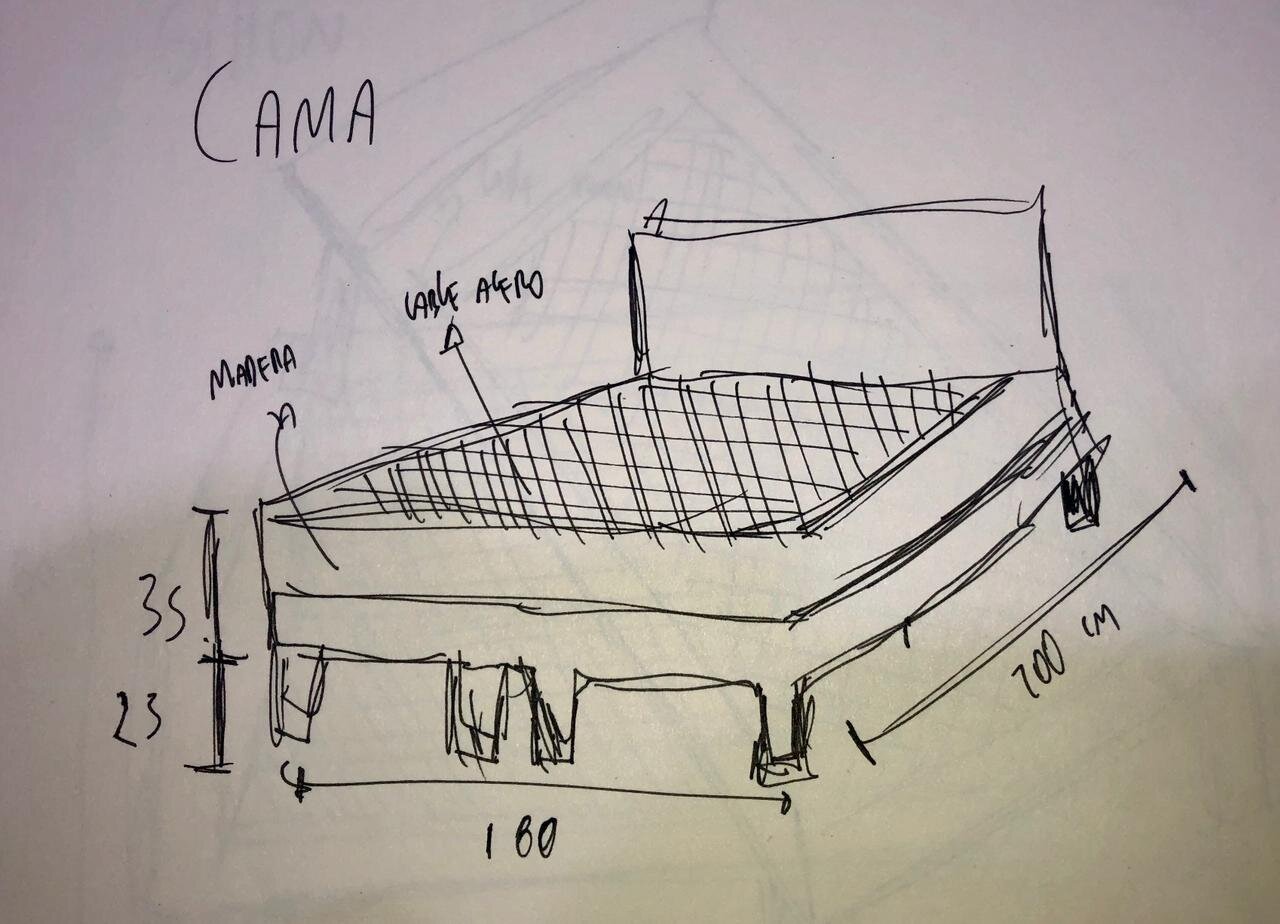 CAMA
CABLE ACERO
MADERA
35
23
200 CM